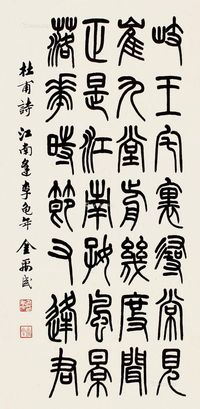 岐王宅裏尋常見
崔九堂前幾度聞
正是江南好風景
落華時節又逢君
杜甫詩 江南逢李龜年 金禹民